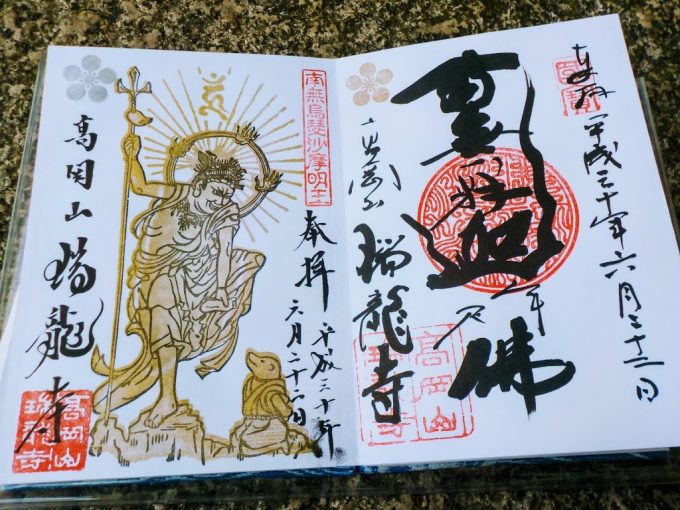 奉拝 平成三十年六月二十二日
南無釋迦牟尼佛
高岡山 瑞龍寺
高岡山
瑞龍寺
南無烏瑟沙摩明王
奉拝 平成三十年
六月二十二日
高岡山 瑞龍寺
高岡山
瑞龍寺